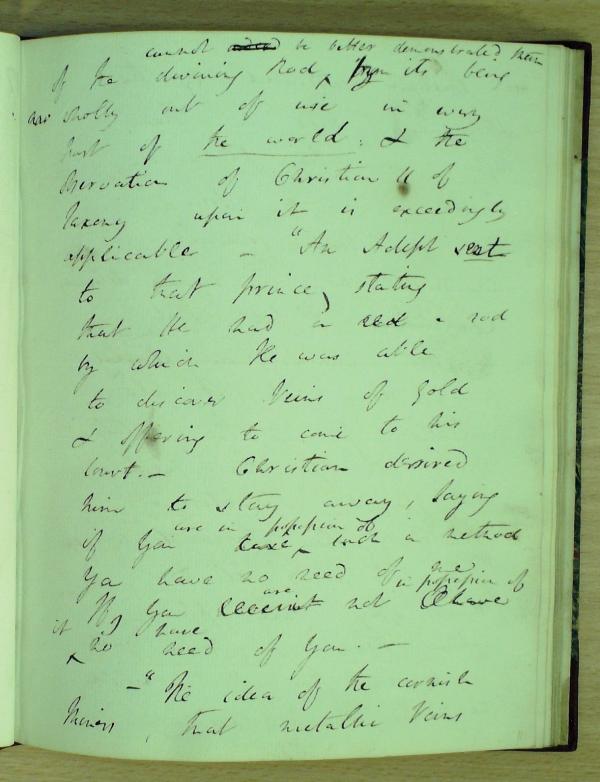 cannot be better demonstrated than
of the divining Rod from its being
now wholly out of use in every
part of the world: & the
observation of Christian II of
Saxony upon it is exceedingly
applicable – "An Adept sent
to that prince, stating
that He had a rod
by which He was able
to discover Veins of Gold
& offering to come to his
Court. – Christian desired
him to stay away, saying
are in possession of
if you such a method
You have no need of me
are in possession of
If you not
it have
no need of You. –
– "The idea of the cornish
Miners, that metallic Veins